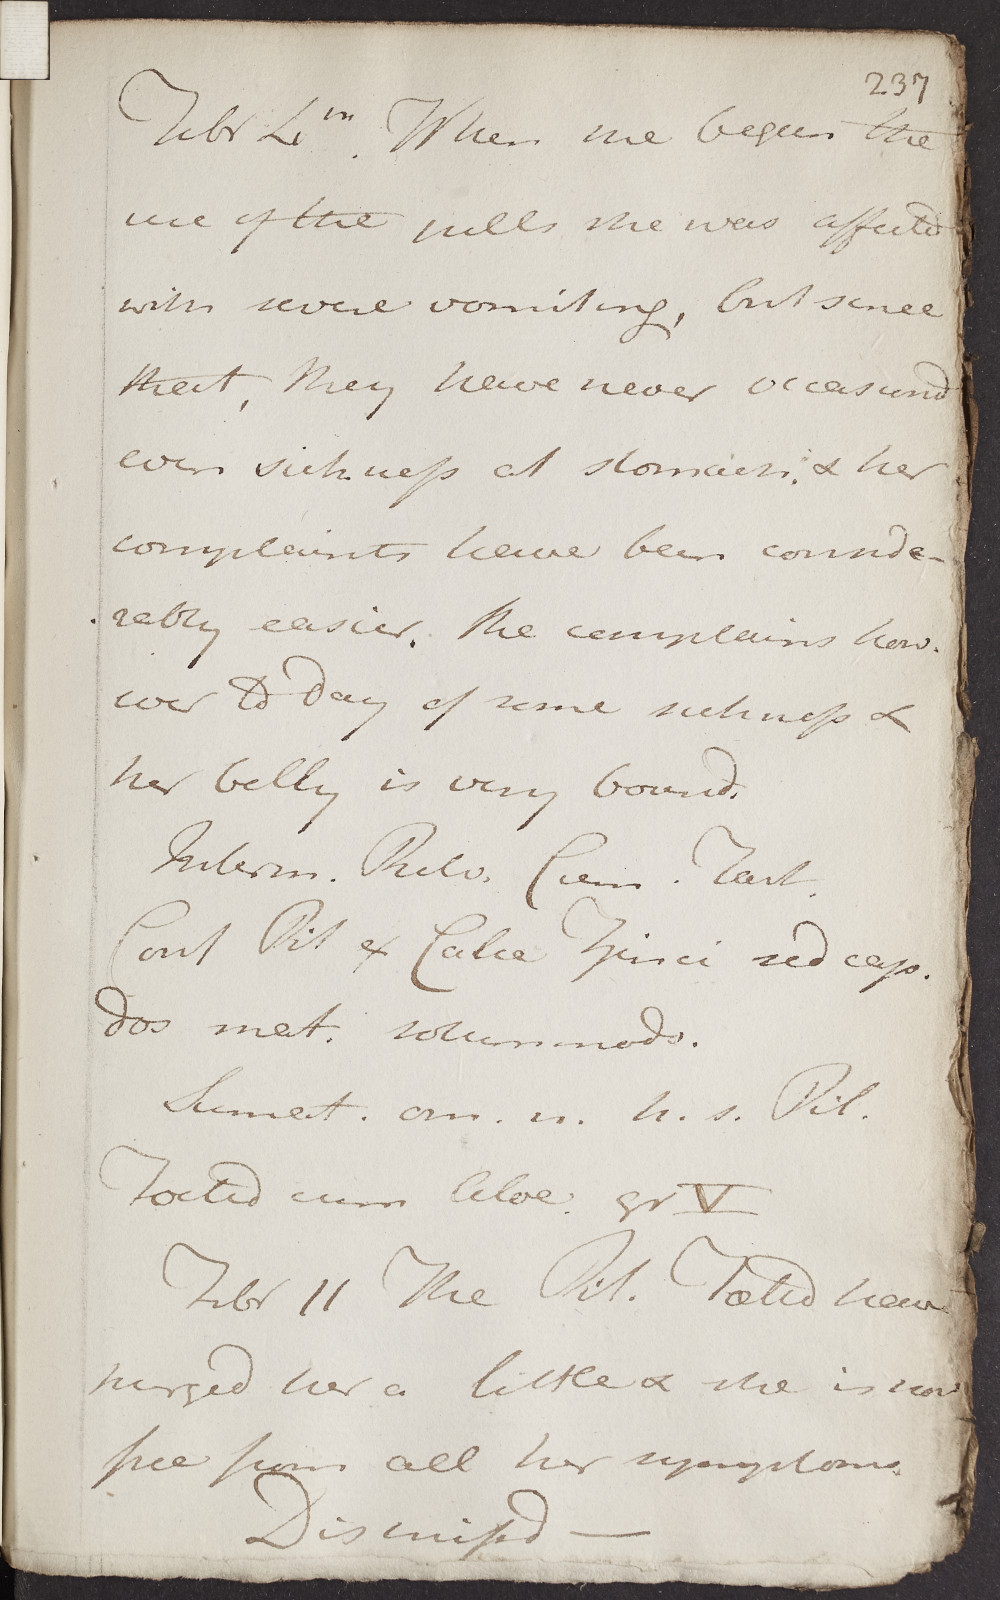 237
Febr 4th. When she began the
use of the pills she was affected
with severe vomiting, but since
that, they have never occasiond
even sickness at stomach; & her
complaints have been conside-
rably easier. She complains how-
ever to day of some sickness &
her belly is very bound.
Interm. Pulv. Crem. Tart.
Cont Pil ex Calce Zinci sed cap.
dos mat. solummodo.
Sumat. om. n. h. s. Pil.
Foetid cum Aloe. gr V
Febr 11 The Pil. Fœtid have
purged her a little & she is now
free from all her symptoms
Dismissd —